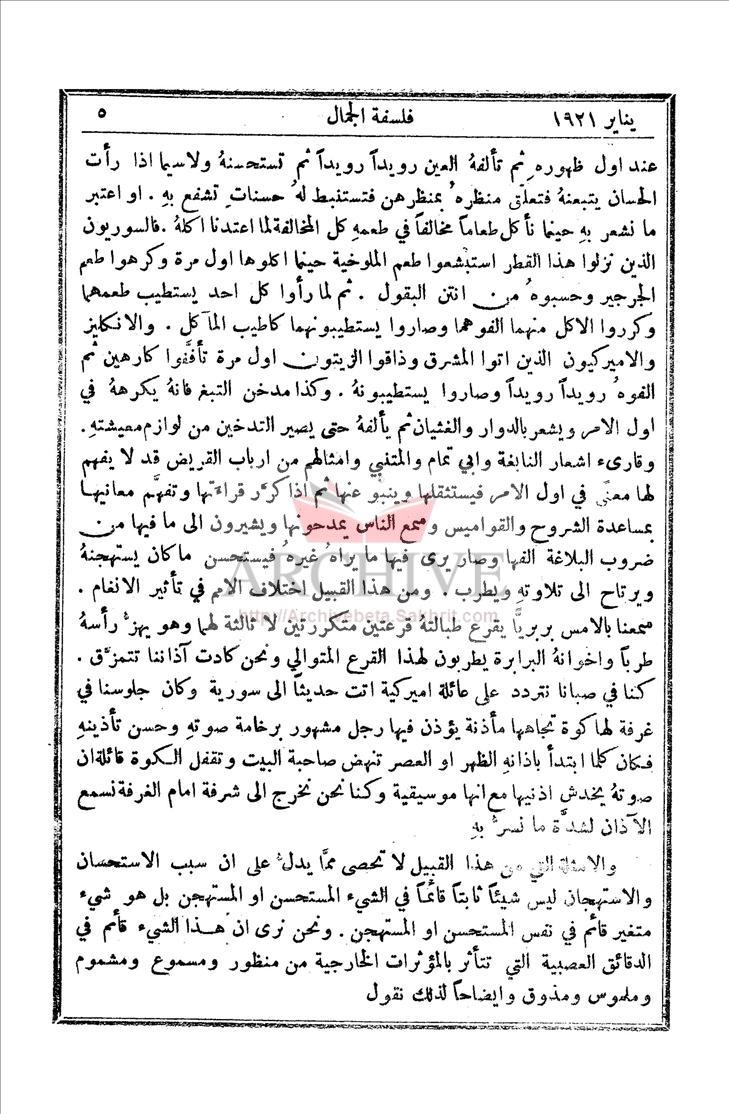 يناير ١٩٢١ فلسفة الجمال ٥
عند اول ظهوره ثم تألفهُ العين رويداً رويداً ثم تستحسنهُ ولاسيما اذا رأت
الحسان يتبعنهُ فتعلق منظرهُ بمنظرهن فتستنبط لهُ حسنات تشفع بهِ . او اعتبر
ما نشعر بهِ حينما نأكل طعاماً مخالفاً في طعمهِ كل المخالفة لما اعتدنا اكلهُ . فالسوريون
الذين نزلوا هذا القطر استبشعوا طعم الملوخية حينما اكلوها اول مرة وكرهوا طعم
الجرجير وحسبوهُ من انتن البقول . ثم لما رأوا كل احد يستطيب طعمهما
وكرروا الاكل منهما الفوهما وصاروا يستطيبونهما كاطيب المآكل . والانكليز
والاميركيون الذين اتوا المشرق وذاقوا الزيتون اول مرة تأففوا كارهين ثم
الفوهُ رويداً رويداً وصاروا يستطيبونهُ . وكذا مدخن التبغ فانهُ يكرههُ في
اول الامر ويشعر بالدوار والغثيان ثم يألفهُ حتى يصير التدخين من لوازم معيشتهِ .
وقارىء اشعار النابغة وابي تمام والمتنبي وامثالهم من ارباب القريض قد لا يفهم
لها معنًى في اول الامر فيستثقلها وينبو عنها ثم اذا كرَّر قراءتها وتفهَّم معانيها
بمساعدة الشروح والقواميس وسمع الناس يمدحونها ويشيرون الى ما فيها من
ضروب البلاغة الفها وصار يرى فيها ما يراهُ غيرهُ فيستحسن ماكان يستهجنهُ
ويرتاح الى تلاوتهِ ويطرب . ومن هذا القبيل اختلاف الامم في تأثير الانغام .
سمعنا بالامس بربريًّا يقرع طبالتهُ قرعتين متكررتين لا ثالثة لهما وهو يهزُّ رأسهُ
طرباً واخوانهُ البرابرة يطربون لهذا القرع المتوالي ونحن كادت آذاننا تتمزَّق .
كنا في صبانا نتردد على عائلة اميركية اتت حديثاً الى سورية وكان جلوسنا في
غرفة لها كوة تجاهها مأذنة يؤذن فيها رجل مشهور برخامة صوتهِ وحسن تأذينهِ
فكان كلما ابتدأ باذانهِ الظهر او العصر تنهض صاحبة البيت وتقفل الكوة قائلة ان
صوتهُ يخدش اذنيها مع انها موسيقية وكنا نحن نخرج الى شرفة امام الغرفة نسمع
الآذان لشدَّة ما نسرُّ بهِ
والامثلة التي من هذا القبيل لا تحصى ممَّا يدلُّ على ان سبب الاستحسان
والاستهجان ليس شيئاً ثابتاً قائماً في الشيء المستحسن او المستهجن بل هو شيء
متغير قائم في نفس المستحسن او المستهجن . ونحن نرى ان هذا الشيء قائم في
الدقائق العصبية التي تتأثر بالمؤثرات الخارجية من منظور ومسموع ومشموم
وملموس ومذوق وايضاحاً لذلك نقول
ARCHIVE
http://Archivebeta.Sakhrit.com